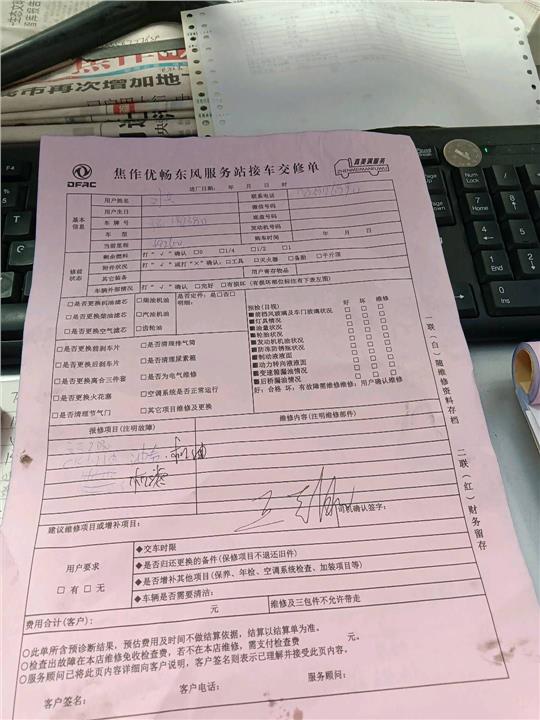 市再次增加地
DFAC
焦作优畅东风服务站接车交修单
真美满服务
ZHENMEIMANFUWU
进厂日期： 年 月 日 时
基本信息
用户姓名
联系电话
用户生日
微信号码
车牌号
底盘号码
车型
发动机号码
当前里程
购车时间 年 月 日
修前状态
剩余燃料 打“√”确认：□0 □1/4 □1/2 □1
附件状况 打“√”或打“×”确认：□工具 □灭火器 □备胎 □千斤顶
其它装备 用户寄存物品
车辆外部情况 打“√”确认 □完好 □有损坏（有损部位标位有下表左图）
□是否更换机油滤芯 □柴油机油 是否定件：是□否□
□是否更换柴油滤芯 □汽油机油 明细：
□是否更换空气滤芯 □齿轮油
□是否更换前刹车片 □是否清理排气筒
□是否更换后刹车片 □是否清理尿素箱
□是否更换离合三件套 □是否为电气维修
□是否更换火花塞 □空调系统是否正常运行
□是否清理节气门 □其它项目维修及更换
预检(目视) 好 坏 维修
■前挡风玻璃及车门玻璃状况 □ □ □
■灯具情况 □ □ □
■油量状况 □ □ □
■轮胎状况 □ □ □
■发动机机油状况 □ □ □
■防冻防锈瓶状况 □ □ □
■制动液液面 □ □ □
■动力转向液液面 □ □ □
■变速箱漏油情况 □ □ □
■后桥漏油情况 □ □ □
好：合格 坏：有故障需维修维修：用户确认维修
报修项目(注明故障)
维修内容(注明维修部件)
机油
司机确认签字：
建议维修项目或增补项目：
用户要求
□有 □无
◆交车时限
◆是否归还更换的备件(保修项目不退还旧件)
◆是否增补其他项目(保养、年检、空调系统检查、加装项目等)
◆车辆是否需要清洁：
费用合计(客户)： 元
维修及三包件不允许带走
○此单所含预诊断结果，预估费用及时间不做结算依据，结算以结算单为准。
○检查出故障在本店维修免收检查费，若不在本店维修，需支付检查费 元。
○服务顾问已将此页内容详细向客户说明，客户签名则表示已理解并接受此页内容。
客户签名： 客户电话： 服务顾问：
一联(白)随维修资料存档
二联(红)财务留存